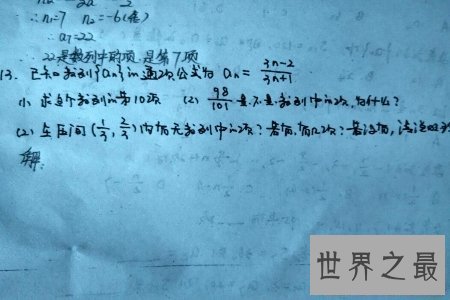 ∴n₁=7 n₂=-6(舍)
∴a₇=22
∴22是数列中的项,是第7项
13. 已知数列{an}的通项公式为 an= 3n-2/3n+1
(1) 求这个数列的第10项 (2) 98/101是不是数列中的项,为什么?
(2) 在区间(1/3, 2/3)内有无数列中的项?若有,有几项?若没有,请说明
解:
世界之最